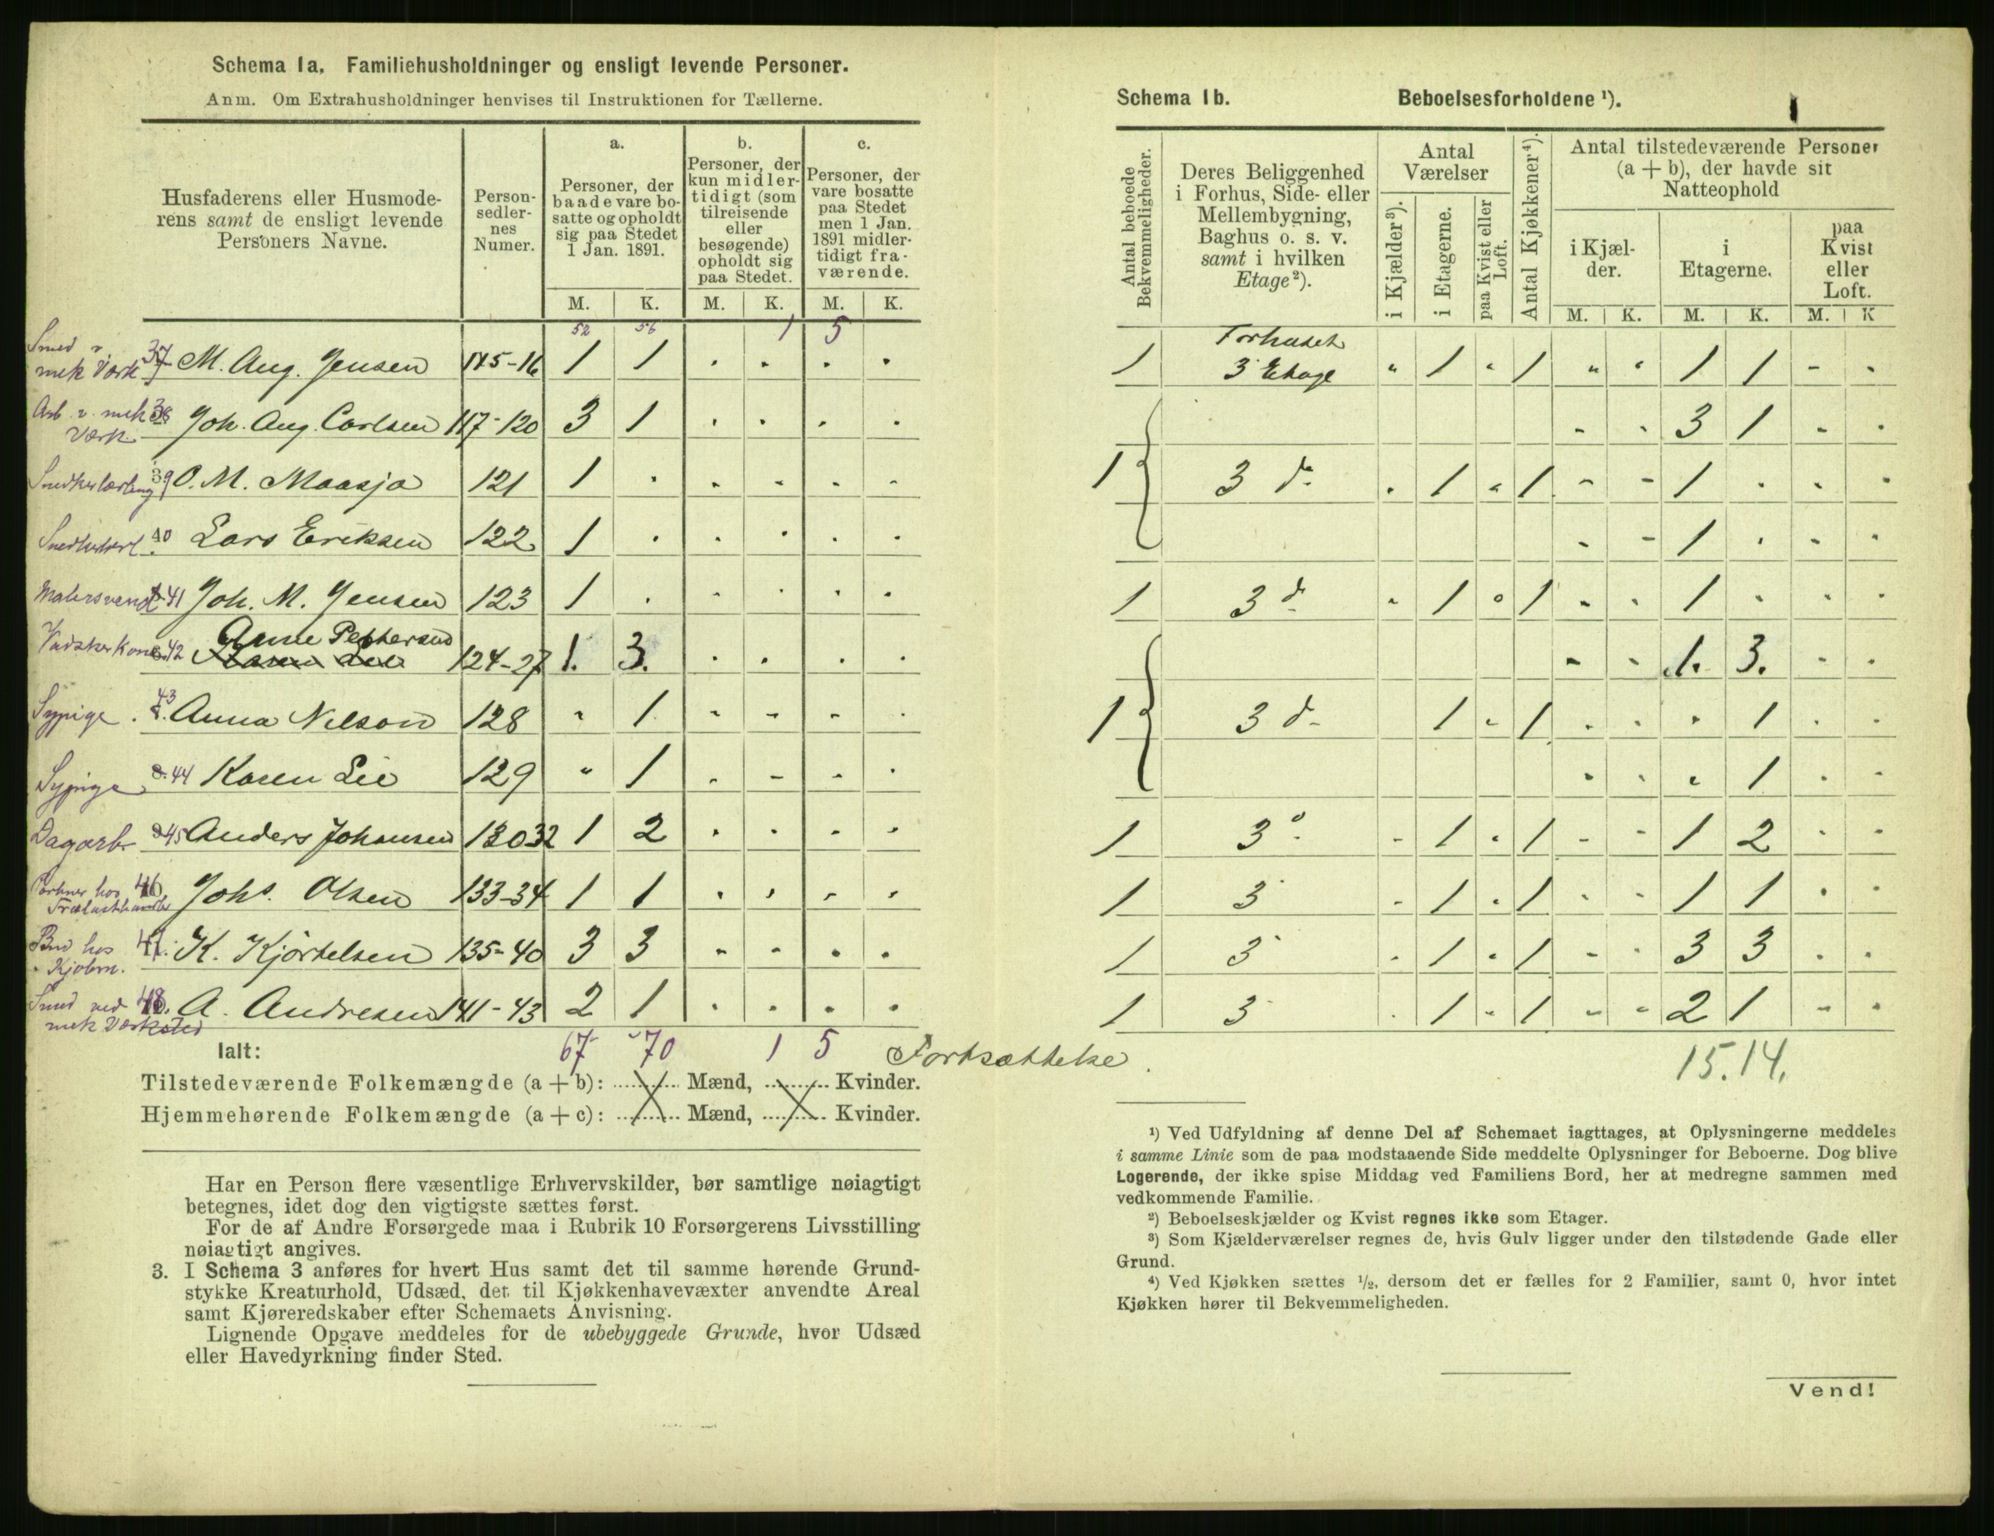 Schema 1a. Familiehusholdninger og ensligt levende Personer.
Anm. Om Extrahusholdninger henvises til Instruktionen for Tællerne.
Husfaderens eller Husmoderens samt de ensligt levende Personers Navne.
Person-sedler-nes Numer.
a. Personer, der baade vare bosatte og opholdt sig paa Stedet 1 Jan. 1891.
b. Personer, der kun midlertidigt (som tilreisende eller besøgende) opholdt sig paa Stedet.
c. Personer, der vare bosatte paa Stedet men 1 Jan. 1891 midlertidigt fraværende.
M. K. M. K. M. K.
52 56 1 5
Smed v mek Værk 37 M. Aug. Jensen 115-16 1 1 . . . .
Arb. v. mek Værk 38 Joh. Aug. Carlsen 117-120 3 1 . . . .
Snedkerlærling 39 O. M. Maasjø 121 1 . . - . .
40 Lars Eriksen 122 1 . . . . .
Malersvend 41 Joh. M. Jensen 123 1 . . . . .
Vadskerkone 42 Anne Pettersen 124-27 1. 3. . . . .
Sypige . 43 Anna Nilson 128 " 1 - - - .
Sypige 44 Karen Lie 129 " 1 . - - .
Dagarb 45 Anders Johansen 130 32 1 2 . . . .
hos Trælasthandler 46. Johs. Olsen 133-34 1 1 . . - .
Bud hos Kjøbm. 47. K. Kjørtelsen 135-40 3 3 - - . .
Smed ved mek Værksted 48. A. Andresen 141-43 2 1 . . . .
Ialt: 67 70 1 5 Fortsættelse.
Tilstedeværende Folkemængde (a + b): ........ Mænd, ........ Kvinder.
Hjemmehørende Folkemængde (a + c): ........ Mænd, ........ Kvinder.
Har en Person flere væsentlige Erhvervskilder, bør samtlige nøiagtigt
betegnes, idet dog den vigtigste sættes først.
For de af Andre Forsørgede maa i Rubrik 10 Forsørgerens Livsstilling
nøiagtigt angives.
3. I Schema 3 anføres for hvert Hus samt det til samme hørende Grund-
stykke Kreaturhold, Udsæd, det til Kjøkkenhavevæxter anvendte Areal
samt Kjøreredskaber efter Schemaets Anvisning.
Lignende Opgave meddeles for de ubebyggede Grunde, hvor Udsæd
eller Havedyrkning finder Sted.
Schema 1b. Beboelsesforholdene ¹).
Antal beboede Bekvemmeligheder.
Deres Beliggenhed i Forhus, Side- eller Mellembygning, Baghus o. s. v. samt i hvilken Etage²).
Antal Værelser
i Kjælder³).
i Etagerne.
paa Kvist eller Loft.
Antal Kjøkkener⁴).
Antal tilstedeværende Personer (a + b), der havde sit Natteophold
i Kjælder.
i Etagerne.
paa Kvist eller Loft.
M. K. M. K. M. K
1 Forhuset 3 Etage " 1 " 1 " " 1 1 - .
- . 3 1 - .
1 3 do . 1 " 1 - - 1 . . .
- - 1 . - .
1 3 d. " 1 o 1 - . 1 . . .
- - 1. 3. - .
1 3 d- 1 - 1 . . . 1 . .
. . " 1 . .
1 3 o. - 1 . 1 - - 1 2 . .
1 3 - 1 . 1 - . 1 1 . .
1 3 - 1 . 1 - . 3 3 . .
1 3 . 1 - 1 - - 2 1 . .
15. 14.
¹) Ved Udfyldning af denne Del af Schemaet iagttages, at Oplysningerne meddeles
i samme Linie som de paa modstaaende Side meddelte Oplysninger for Beboerne. Dog blive
Logerende, der ikke spise Middag ved Familiens Bord, her at medregne sammen med
vedkommende Familie.
²) Beboelseskjælder og Kvist regnes ikke som Etager.
³) Som Kjælderværelser regnes de, hvis Gulv ligger under den tilstødende Gade eller
Grund.
⁴) Ved Kjøkken sættes ½, dersom det er fælles for 2 Familier, samt 0, hvor intet
Kjøkken hører til Bekvemmeligheden.
Vend!